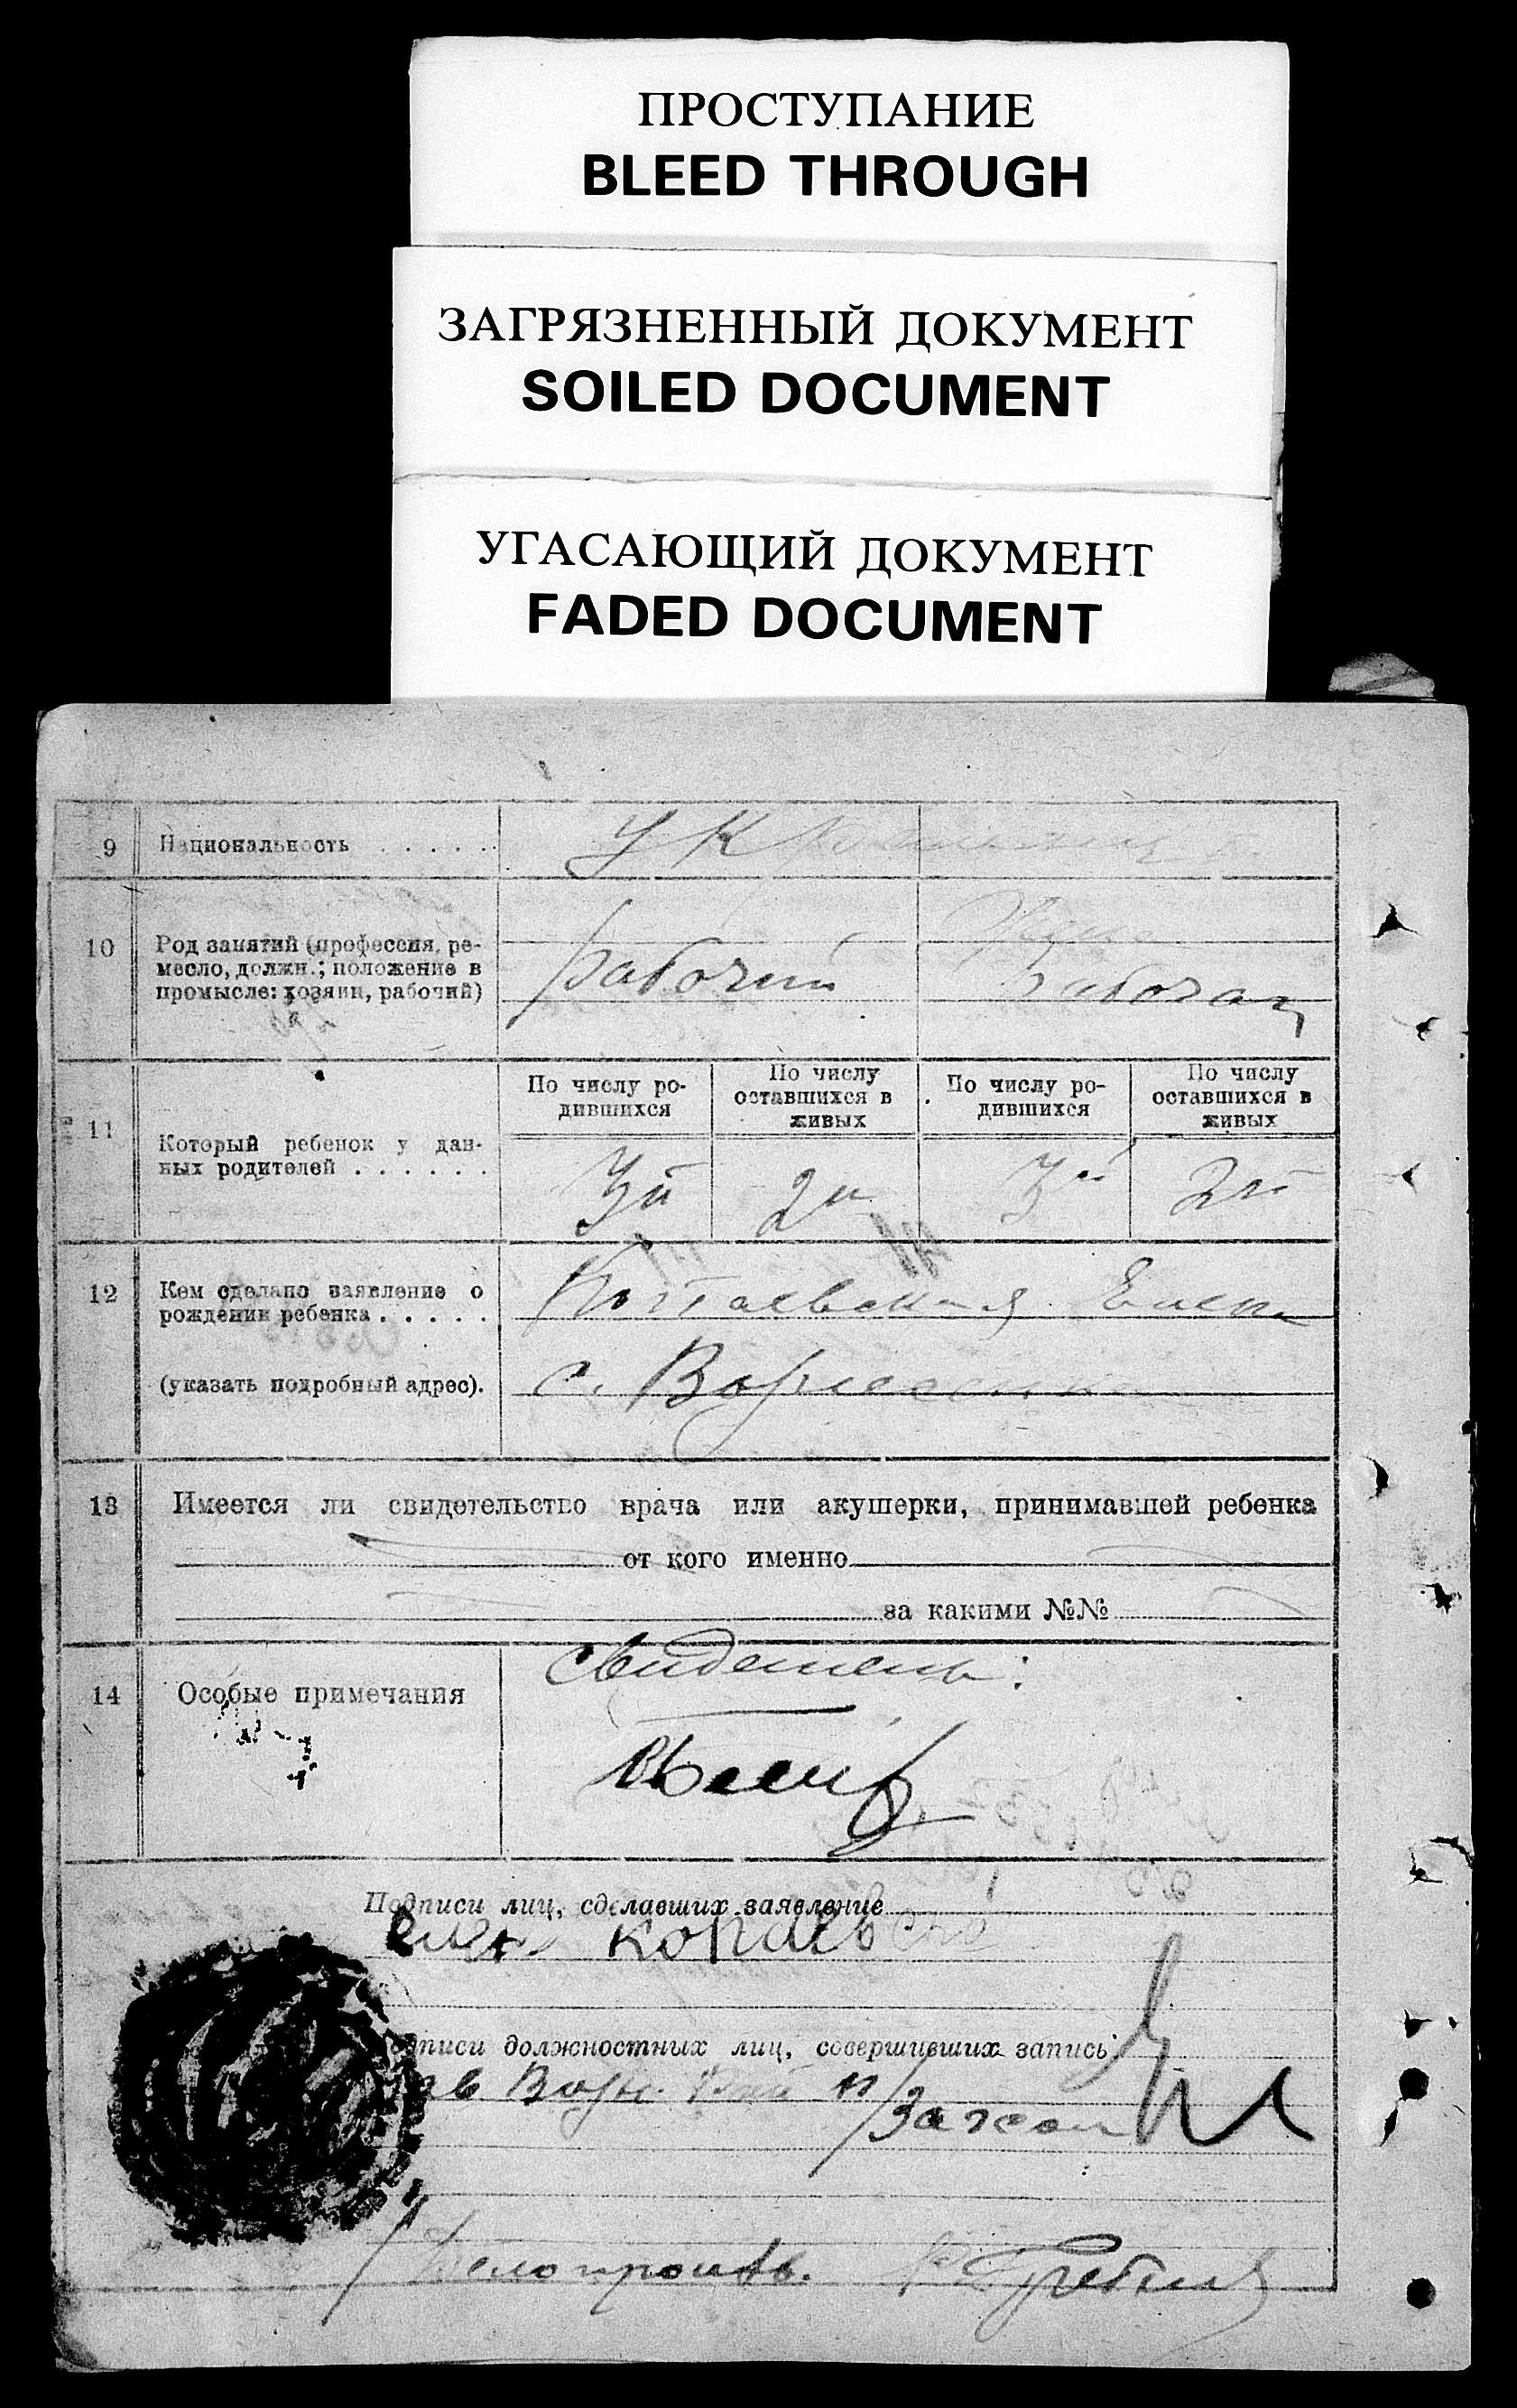 ПРОСТУПАНИЕ
BLEED THROUGH
ЗАГРЯЗНЕННЫЙ ДОКУМЕНТ
SOILED DOCUMENT
УГАСАЮЩИЙ ДОКУМЕНТ
FADED DOCUMENT
9 Национальность . . . . .
10 Род занятий (профессия, ре-
месло, должн.; положение в
промысле: хозяин, рабочий)
Рабочий рабочая
11 Который ребенок у дан-
ных родителей . . . . . .
По числу ро-
дившихся
По числу
оставшихся в
живых
По числу ро-
дившихся
По числу
оставшихся в
живых
3й 2й 3й 2й
12 Кем сделано заявление о
рождении ребенка . . . . .
Елена
(указать подробный адрес).
с.
13 Имеется ли свидетельство врача или акушерки, принимавшей ребенка
от кого именно
за какими №№
14 Особые примечания
Свидетель:
Подписи лиц, сделавших заявление
Подписи должностных лиц, совершивших запись:
Делопроизв.